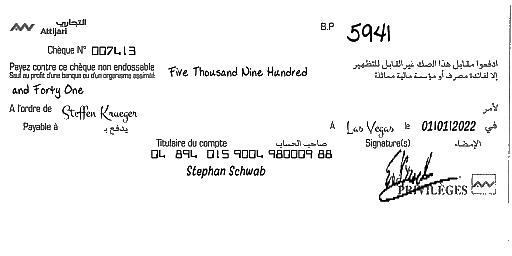 التجاري
Attijari
B.P 5941
Chèque N° 007413
Payez contre ce chèque non endossable
Sauf au profit d'une banque ou d'un organisme assimilé
Five Thousand Nine Hundred
ادفعوا مقابل هذا الصك غير القابل للتظهير
إلا لفائدة مصرف أو مؤسسة مالية مماثلة
and Forty One
A l'ordre de Steffen Krueger
لأمر
Payable à
يدفع بـ
A Las Vegas le 01/01/2022 في
Titulaire du compte صاحب الحساب
Signature(s) الإمضاء
04 894 015 9004 980009 88
Stephan Schwab
PRIVILÈGES